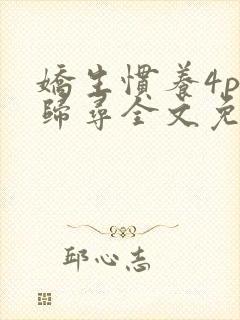 嬌生慣養4p
歸尋全文免
邱心志